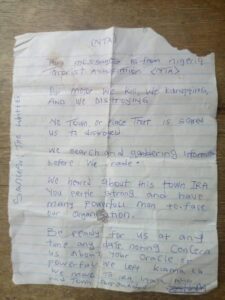 (NTA)
This message is from Nigeria
Terorist Association (NTA)
Our motor We Kill, We Kidnapping,
AND We DISTROYING
No Town or Place That is scared
us to distroyed
We search and gathering information
before We raide
We heared about this town IRA
You people strong and have
many powerfull man to face
our organisation.
Be ready for us at any
time any date, noting concern
us about Your oracle or
powerful We left Kiama
We come to
and Town